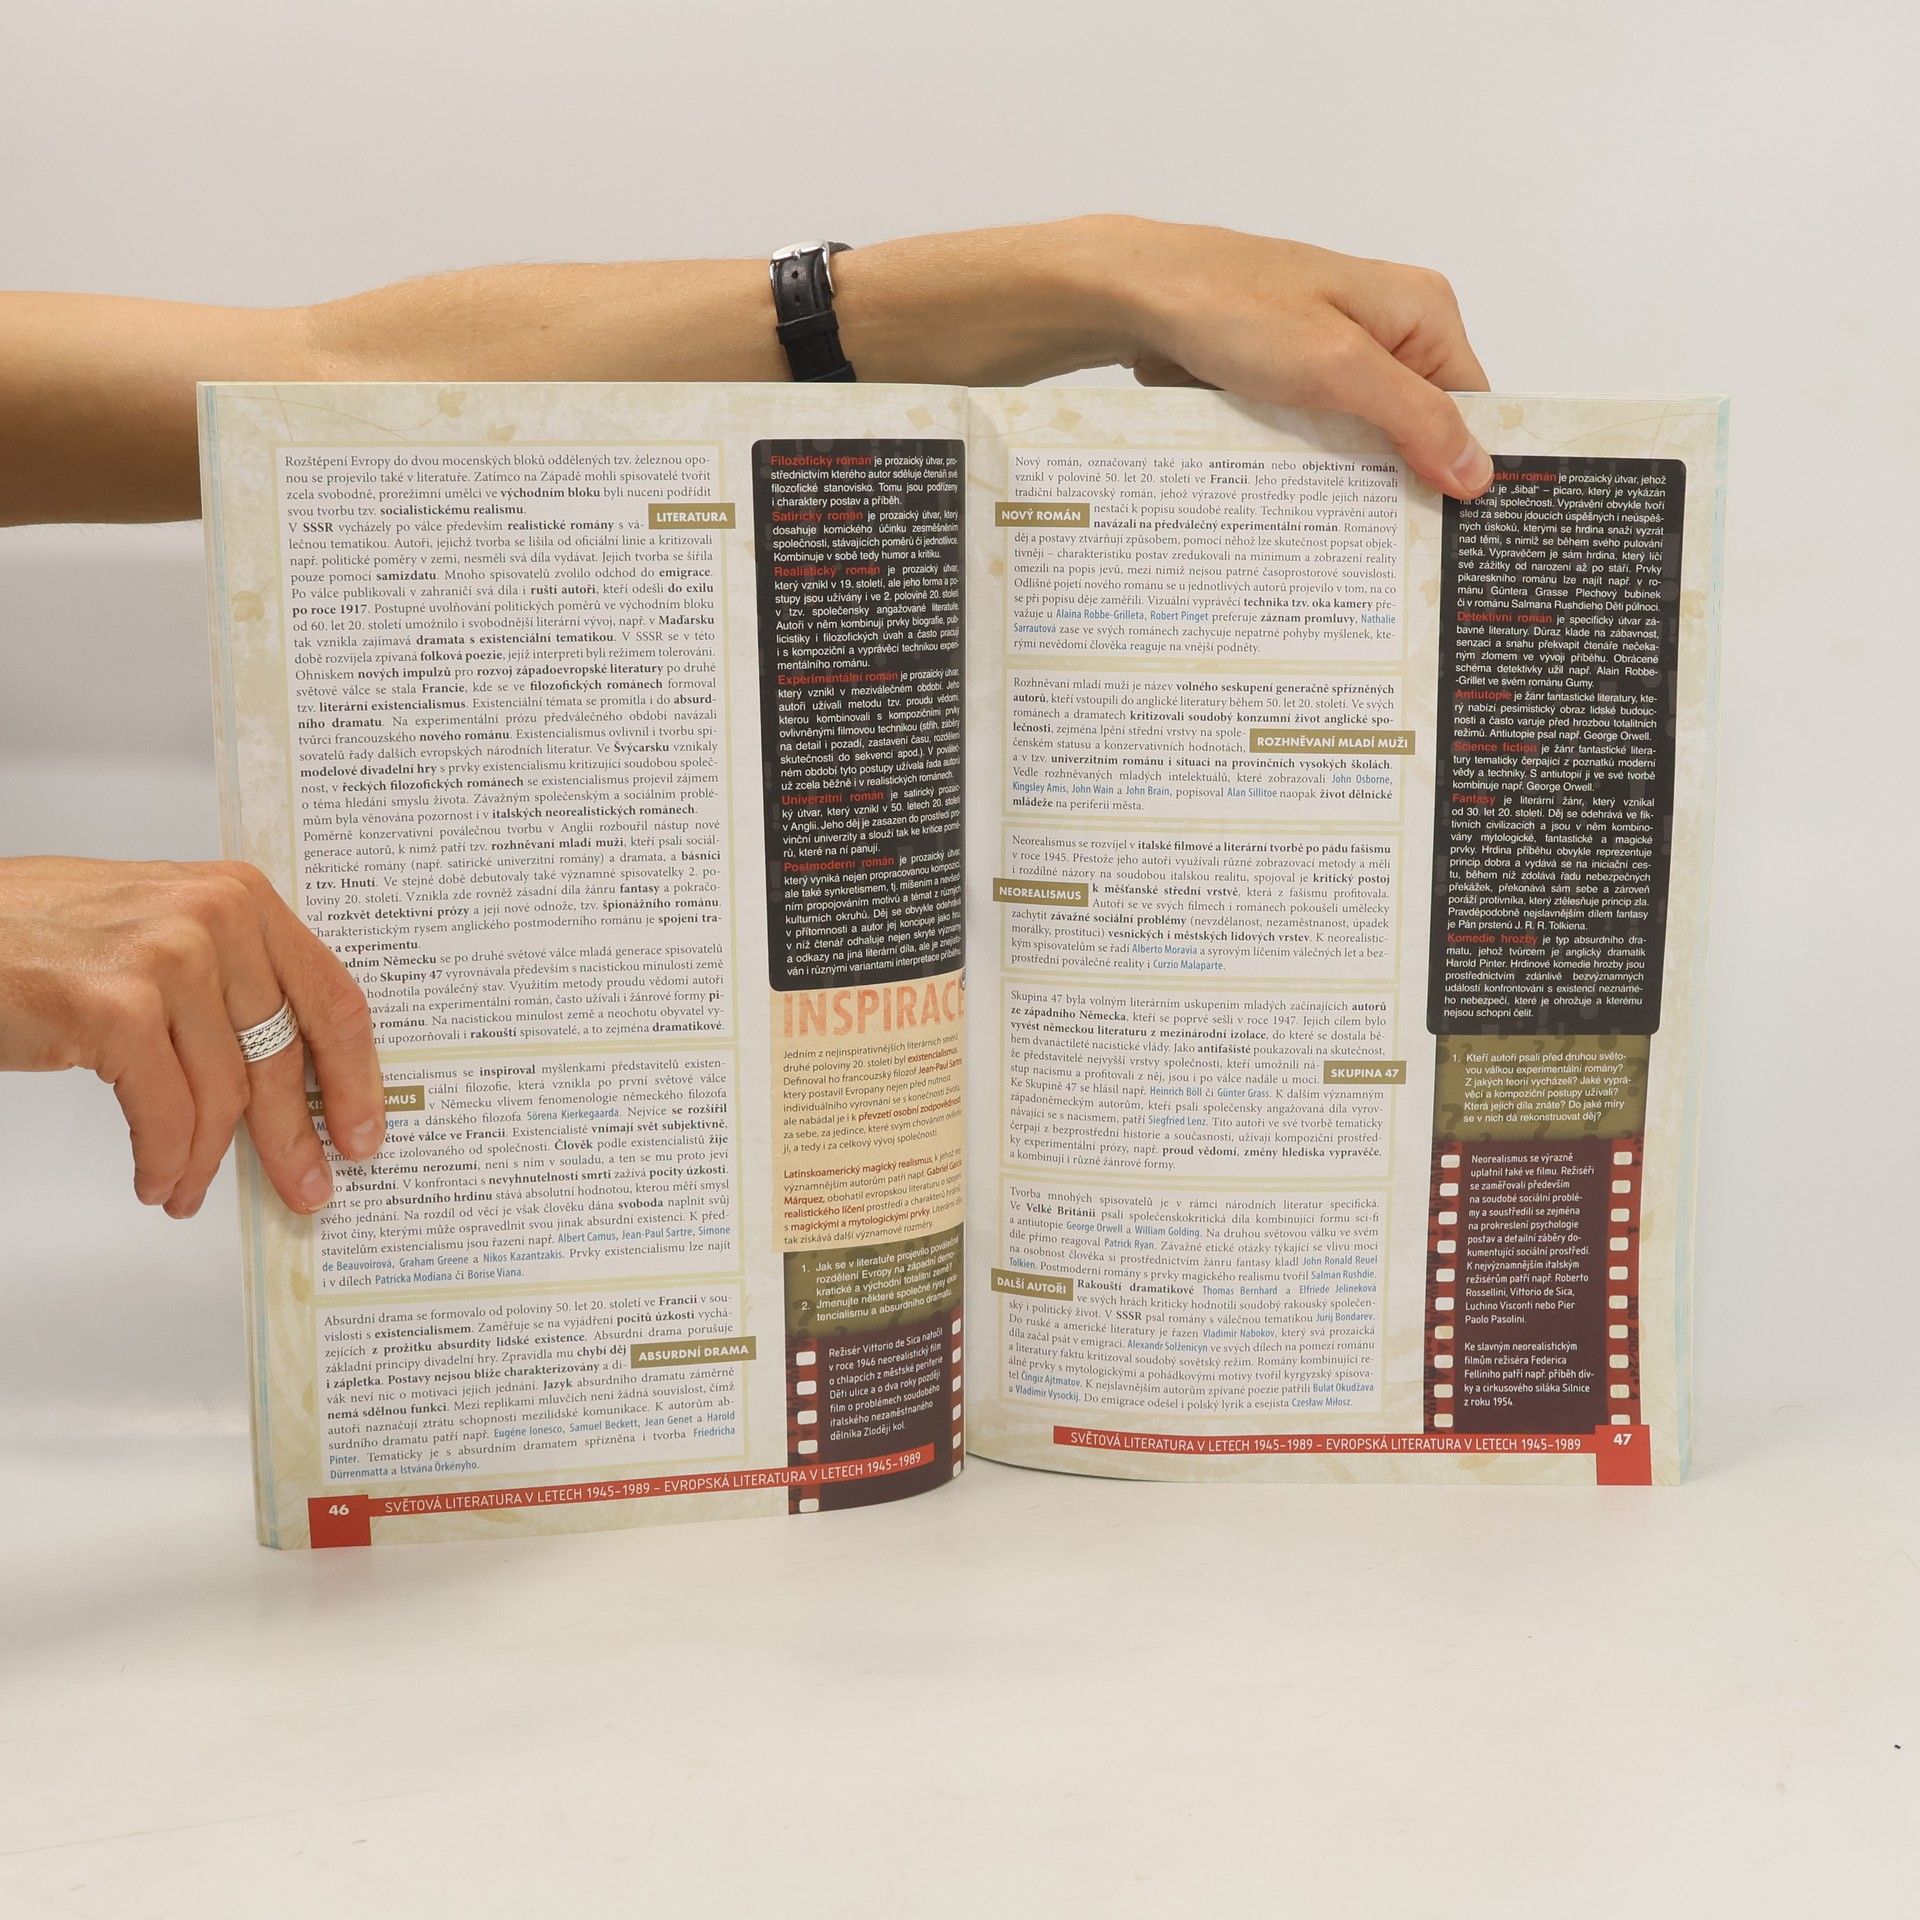 Rozštěpení Evropy do dvou mocenských bloků oddělených tzv. železnou opo-
nou se projevilo také v literatuře. Zatímco na Západě mohli spisovatelé tvořit
zcela svobodně, prorežimní umělci ve východním bloku byli nuceni podřídit
svou tvorbu tzv. socialistickému realismu.
LITERATURA
V SSSR vycházely po válce především realistické romány s vá-
lečnou tematikou. Autoři, jejichž tvorba se lišila od oficiální linie a kritizovali
např. politické poměry v zemi, nesměli svá díla vydávat. Jejich tvorba se šířila
pouze pomocí samizdatu. Mnoho spisovatelů zvolilo odchod do emigrace.
Po válce publikovali v zahraničí svá díla i ruští autoři, kteří odešli do exilu
po roce 1917. Postupné uvolňování politických poměrů ve východním bloku
od 60. let 20. století umožnilo i svobodnější literární vývoj, např. v Maďarsku
tak vznikla zajímavá dramata s existenciální tematikou. V SSSR se v této
době rozvíjela zpívaná folková poezie, jejíž interpreti byli režimem tolerováni.
Ohniskem nových impulzů pro rozvoj západoevropské literatury po druhé
světové válce se stala Francie, kde se ve filozofických románech formoval
tzv. literární existencialismus. Existenciální témata se promítla i do absurd-
ního dramatu. Na experimentální prózu předválečného období navázali
tvůrci francouzského nového románu. Existencialismus ovlivnil i tvorbu spi-
sovatelů řady dalších evropských národních literatur. Ve Švýcarsku vznikaly
modelové divadelní hry s prvky existencialismu kritizující soudobou společ-
nost, v řeckých filozofických románech se existencialismus projevil zájmem
o téma hledání smyslu života. Závažným společenským a sociálním problé-
mům byla věnována pozornost i v italských neorealistických románech.
Poměrně konzervativní poválečnou tvorbu v Anglii rozbouřil nástup nové
generace autorů, k nimž patří tzv. rozhněvaní mladí muži, kteří psali sociál-
někritické romány (např. satirické univerzitní romány) a dramata, a básníci
z tzv. Hnutí. Ve stejné době debutovaly také významné spisovatelky 2. po-
loviny 20. století. Vznikla zde rovněž zásadní díla žánru fantasy a pokračo-
val rozkvět detektivní prózy a její nové odnože, tzv. špionážního románu.
Charakteristickým rysem anglického postmoderního románu je spojení tra-
a experimentu.
Německu se po druhé světové válce mladá generace spisovatelů
do Skupiny 47 vyrovnávala především s nacistickou minulostí země
hodnotila poválečný stav. Využitím metody proudu vědomí autoři
navázali na experimentální román, často užívali i žánrové formy pi-
románu. Na nacistickou minulost země a neochotu obyvatel vy-
upozorňovali i rakouští spisovatelé, a to zejména dramatikové.
se inspiroval myšlenkami představitelů existen-
ciální filozofie, která vznikla po první světové válce
v Německu vlivem fenomenologie německého filozofa
a dánského filozofa Sörena Kierkegaarda. Nejvíce se rozšířil
světové válce ve Francii. Existencialisté vnímají svět subjektivně,
izolovaného od společnosti. Člověk podle existencialistů žije
světě, kterému nerozumí, není s ním v souladu, a ten se mu proto jeví
absurdní. V konfrontaci s nevyhnutelností smrti zažívá pocity úzkosti.
se pro absurdního hrdinu stává absolutní hodnotou, kterou měří smysl
svého jednání. Na rozdíl od věcí je však člověku dána svoboda naplnit svůj
život činy, kterými může ospravedlnit svou jinak absurdní existenci. K před-
stavitelům existencialismu jsou řazeni např. Albert Camus, Jean-Paul Sartre, Simone
de Beauvoirová, Graham Greene a Nikos Kazantzakis. Prvky existencialismu lze najít
i v dílech Patricka Modiana či Borise Viana.
Absurdní drama se formovalo od poloviny 50. let 20. století ve Francii v sou-
vislosti s existencialismem. Zaměřuje se na vyjádření pocitů úzkosti vychá-
zejících z prožitku absurdity lidské existence. Absurdní drama porušuje
základní principy divadelní hry. Zpravidla mu chybí děj
ABSURDNÍ DRAMA
i zápletka. Postavy nejsou blíže charakterizovány a di-
vák neví nic o motivaci jejich jednání. Jazyk absurdního dramatu záměrně
nemá sdělnou funkci. Mezi replikami mluvčích není žádná souvislost, čímž
autoři naznačují ztrátu schopnosti mezilidské komunikace. K autorům ab-
surdního dramatu patří např. Eugéne Ionesco, Samuel Beckett, Jean Genet a Harold
Pinter. Tematicky je s absurdním dramatem spřízněna i tvorba Friedricha
Dürrenmatta a Istvána Örkényho.
Filozofický román je prozaický útvar, pro-
střednictvím kterého autor sděluje čtenáři své
filozofické stanovisko. Tomu jsou podřízeny
i charaktery postav a příběh.
Satirický román je prozaický útvar, který
dosahuje komického účinku zesměšněním
společnosti, stávajících poměrů či jednotlivce.
Kombinuje v sobě tedy humor a kritiku.
Realistický román je prozaický útvar,
který vznikl v 19. století, ale jeho forma a po-
stupy jsou užívány i ve 2. polovině 20. století
v tzv. společensky angažované literatuře.
Autoři v něm kombinují prvky biografie, pub-
licistiky i filozofických úvah a často pracují
i s kompoziční a vyprávěcí technikou experi-
mentálního románu.
Experimentální román je prozaický útvar,
který vznikl v meziválečném období. Jeho
autoři užívali metodu tzv. proudu vědomí,
kterou kombinovali s kompozičními prvky
ovlivněnými filmovou technikou (střih, záběry
na detail i pozadí, zastavení času, rozdělení
skutečnosti do sekvencí apod.). V pováleč-
ném období tyto postupy užívala řada autorů
už zcela běžně i v realistických románech.
Univerzitní román je satirický prozaic-
ký útvar, který vznikl v 50. letech 20. století
v Anglii. Jeho děj je zasazen do prostředí pro-
vinční univerzity a slouží tak ke kritice pomě-
rů, které na ní panují.
Postmoderní román je prozaický útvar,
který vyniká nejen propracovanou kompozicí,
ale také synkretismem, tj. míšením a nevšed-
ním propojováním motivů a témat z různých
kulturních okruhů. Děj se obvykle odehrává
v přítomnosti a autor jej koncipuje jako hru,
v níž čtenář odhaluje nejen skryté významy
a odkazy na jiná literární díla, ale je znejisťo-
ván i různými variantami interpretace příběhu.
INSPIRACE
Jedním z nejinspirativnějších literárních směrů
druhé poloviny 20. století byl existencialismus.
Definoval ho francouzský filozof Jean-Paul Sartre,
který postavil Evropany nejen před nutnost
individuálního vyrovnání se s konečností života,
ale nabádal je i k převzetí osobní zodpovědnosti
za sebe, za jedince, které svým chováním ovlivňu-
jí, a tedy i za celkový vývoj společnosti.
Latinskoamerický magický realismus, k jehož nej-
významnějším autorům patří např. Gabriel García
Márquez, obohatil evropskou literaturu o spojení
realistického líčení prostředí a charakterů hrdinů
s magickými a mytologickými prvky. Literární dílo
tak získává další významové rozměry.
1. Jak se v literatuře projevilo poválečné
rozdělení Evropy na západní demo-
kratické a východní totalitní země?
2. Jmenujte některé společné rysy exis-
tencialismu a absurdního dramatu.
Režisér Vittorio de Sica natočil
v roce 1946 neorealistický film
o chlapcích z městské periferie
Děti ulice a o dva roky později
film o problémech soudobého
italského nezaměstnaného
dělníka Zloději kol.
46 SVĚTOVÁ LITERATURA V LETECH 1945–1989 – EVROPSKÁ LITERATURA V LETECH 1945–1989
Nový román, označovaný také jako antiromán nebo objektivní román,
vznikl v polovině 50. let 20. století ve Francii. Jeho představitelé kritizovali
tradiční balzacovský román, jehož výrazové prostředky podle jejich názoru
NOVÝ ROMÁN
nestačí k popisu soudobé reality. Technikou vyprávění autoři
navázali na předválečný experimentální román. Románový
děj a postavy ztvárňují způsobem, pomocí něhož lze skutečnost popsat objek-
tivněji – charakteristiku postav zredukovali na minimum a zobrazení reality
omezili na popis jevů, mezi nimiž nejsou patrné časoprostorové souvislosti.
Odlišné pojetí nového románu se u jednotlivých autorů projevilo v tom, na co
se při popisu děje zaměřili. Vizuální vyprávěcí technika tzv. oka kamery pře-
važuje u Alaina Robbe-Grilleta, Robert Pinget preferuje záznam promluvy, Nathalie
Sarrautová zase ve svých románech zachycuje nepatrné pohyby myšlenek, kte-
rými nevědomí člověka reaguje na vnější podněty.
Rozhněvaní mladí muži je název volného seskupení generačně spřízněných
autorů, kteří vstoupili do anglické literatury během 50. let 20. století. Ve svých
románech a dramatech kritizovali soudobý konzumní život anglické spo-
lečnosti, zejména lpění střední vrstvy na spole-
ROZHNĚVANÍ MLADÍ MUŽI
čenském statusu a konzervativních hodnotách,
a v tzv. univerzitním románu i situaci na provinčních vysokých školách.
Vedle rozhněvaných mladých intelektuálů, které zobrazovali John Osborne,
Kingsley Amis, John Wain a John Brain, popisoval Alan Sillitoe naopak život dělnické
mládeže na periferii města.
Neorealismus se rozvíjel v italské filmové a literární tvorbě po pádu fašismu
v roce 1945. Přestože jeho autoři využívali různé zobrazovací metody a měli
i rozdílné názory na soudobou italskou realitu, spojoval je kritický postoj
NEOREALISMUS
k měšťanské střední vrstvě, která z fašismu profitovala.
Autoři se ve svých filmech i románech pokoušeli umělecky
zachytit závažné sociální problémy (nevzdělanost, nezaměstnanost, úpadek
morálky, prostituci) vesnických i městských lidových vrstev. K neorealistic-
kým spisovatelům se řadí Alberto Moravia a syrovým líčením válečných let a bez-
prostřední poválečné reality i Curzio Malaparte.
Skupina 47 byla volným literárním uskupením mladých začínajících autorů
ze západního Německa, kteří se poprvé sešli v roce 1947. Jejich cílem bylo
vyvést německou literaturu z mezinárodní izolace, do které se dostala bě-
hem dvanáctileté nacistické vlády. Jako antifašisté poukazovali na skutečnost,
že představitelé nejvyšší vrstvy společnosti, kteří umožnili ná-
stup nacismu a profitovali z něj, jsou i po válce nadále u moci.
SKUPINA 47
Ke Skupině 47 se hlásil např. Heinrich Böll či Günter Grass. K dalším významným
západoněmeckým autorům, kteří psali společensky angažovaná díla vyrov-
návající se s nacismem, patří Siegfried Lenz. Tito autoři ve své tvorbě tematicky
čerpají z bezprostřední historie a současnosti, užívají kompoziční prostřed-
ky experimentální prózy, např. proud vědomí, změny hlediska vypravěče,
a kombinují i různé žánrové formy.
Tvorba mnohých spisovatelů je v rámci národních literatur specifická.
Ve Velké Británii psali společenskokritická díla kombinující formu sci-fi
a antiutopie George Orwell a William Golding. Na druhou světovou válku ve svém
díle přímo reagoval Patrick Ryan. Závažné etické otázky týkající se vlivu moci
na osobnost člověka si prostřednictvím žánru fantasy kladl John Ronald Reuel
Tolkien. Postmoderní romány s prvky magického realismu tvořil Salman Rushdie.
DALŠÍ AUTOŘI
Rakouští dramatikové Thomas Bernhard a Elfriede Jelineková
ve svých hrách kriticky hodnotili soudobý rakouský společen-
ský i politický život. V SSSR psal romány s válečnou tematikou Jurij Bondarev.
Do ruské a americké literatury je řazen Vladimir Nabokov, který svá prozaická
díla začal psát v emigraci. Alexandr Solženicyn ve svých dílech na pomezí románu
a literatury faktu kritizoval soudobý sovětský režim. Romány kombinující re-
álné prvky s mytologickými a pohádkovými motivy tvořil kyrgyzský spisova-
tel Čingiz Ajtmatov. K nejslavnějším autorům zpívané poezie patřili Bulat Okudžava
a Vladimir Vysockij. Do emigrace odešel i polský lyrik a esejista Czesław Miłosz.
román je prozaický útvar, jehož
je „šibal“ – picaro, který je vykázán
na okraj společnosti. Vyprávění obvykle tvoří
sled za sebou jdoucích úspěšných i neúspěš-
ných úskoků, kterými se hrdina snaží vyzrát
nad těmi, s nimiž se během svého putování
setká. Vypravěčem je sám hrdina, který líčí
své zážitky od narození až po stáří. Prvky
pikareskního románu lze najít např. v ro-
mánu Güntera Grasse Plechový bubínek
či v románu Salmana Rushdieho Děti půlnoci.
Detektivní román je specifický útvar zá-
bavné literatury. Důraz klade na zábavnost,
senzaci a snahu překvapit čtenáře nečeka-
ným zlomem ve vývoji příběhu. Obrácené
schéma detektivky užil např. Alain Robbe-
-Grillet ve svém románu Gumy.
Antiutopie je žánr fantastické literatury, kte-
rý nabízí pesimistický obraz lidské budouc-
nosti a často varuje před hrozbou totalitních
režimů. Antiutopie psal např. George Orwell.
Science fiction je žánr fantastické litera-
tury tematicky čerpající z poznatků moderní
vědy a techniky. S antiutopií ji ve své tvorbě
kombinuje např. George Orwell.
Fantasy je literární žánr, který vznikal
od 30. let 20. století. Děj se odehrává ve fik-
tivních civilizacích a jsou v něm kombino-
vány mytologické, fantastické a magické
prvky. Hrdina příběhu obvykle reprezentuje
princip dobra a vydává se na iniciační ces-
tu, během níž zdolává řadu nebezpečných
překážek, překonává sám sebe a zároveň
poráží protivníka, který ztělesňuje princip zla.
Pravděpodobně nejslavnějším dílem fantasy
je Pán prstenů J. R. R. Tolkiena.
Komedie hrozby je typ absurdního dra-
matu, jehož tvůrcem je anglický dramatik
Harold Pinter. Hrdinové komedie hrozby jsou
prostřednictvím zdánlivě bezvýznamných
událostí konfrontováni s existencí neznámé-
ho nebezpečí, které je ohrožuje a kterému
nejsou schopni čelit.
1. Kteří autoři psali před druhou světo-
vou válkou experimentální romány?
Z jakých teorií vycházeli? Jaké vyprá-
věcí a kompoziční postupy užívali?
Která jejich díla znáte? Do jaké míry
se v nich dá rekonstruovat děj?
Neorealismus se výrazně
uplatnil také ve filmu. Režiséři
se zaměřovali především
na soudobé sociální problé-
my a soustředili se zejména
na prokreslení psychologie
postav a detailní záběry do-
kumentující sociální prostředí.
K nejvýznamnějším italským
režisérům patří např. Roberto
Rossellini, Vittorio de Sica,
Luchino Visconti nebo Pier
Paolo Pasolini.
Ke slavným neorealistickým
filmům režiséra Federica
Felliniho patří např. příběh dív-
ky a cirkusového siláka Silnice
z roku 1954.
SVĚTOVÁ LITERATURA V LETECH 1945–1989 – EVROPSKÁ LITERATURA V LETECH 1945–1989 47